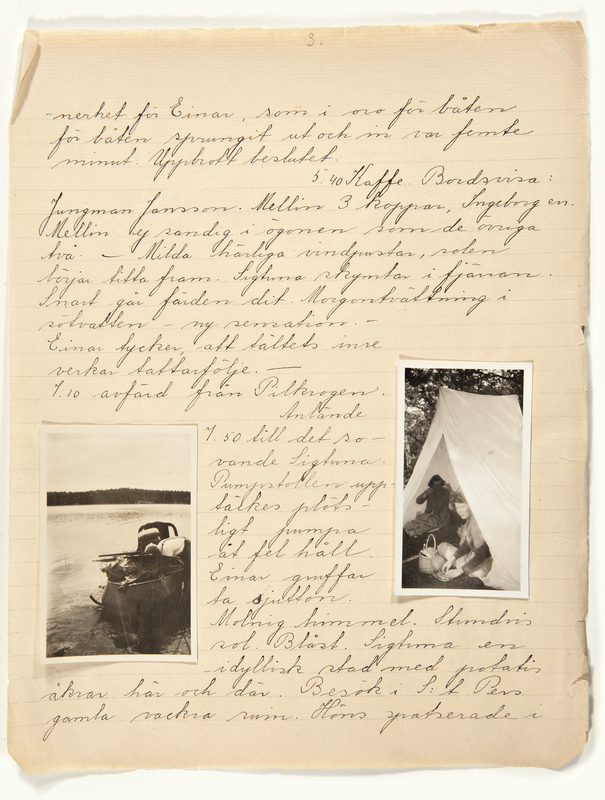 3.
-nerhet för Einar, som i oro för båten
för båten sprungit ut och in var femte
minut. Uppbrott beslutet.
5.40 Kaffe. Bordsvisa:
Jungman Jansson. Mellin 3 koppar, Ingeborg en.
Mellin ej sandig i ögonen som de övriga
två. — Milda härliga vindpustar, solen
börjar titta fram. Sigtuna skymtar i fjärran.
Snart går färden dit. Morgontvättning i
sötvatten - ny sensation. -
Einar tycker, att tältets inre
verkar tattarfölje. —
7.10 avfärd från Pilkrogen.
Anlände
7.50 till det so-
vande Sigtuna.
Pumpstollen upp-
täckes plöts-
ligt pumpa
åt fel håll.
Einar gruffar
ta sjutton.
Molnig himmel. Stundvis
sol. Blåst. Sigtuna en
-idyllisk stad med potatis
åkrar här och där. Besök i S:t Pers
gamla vackra ruin. Höns spatserade i